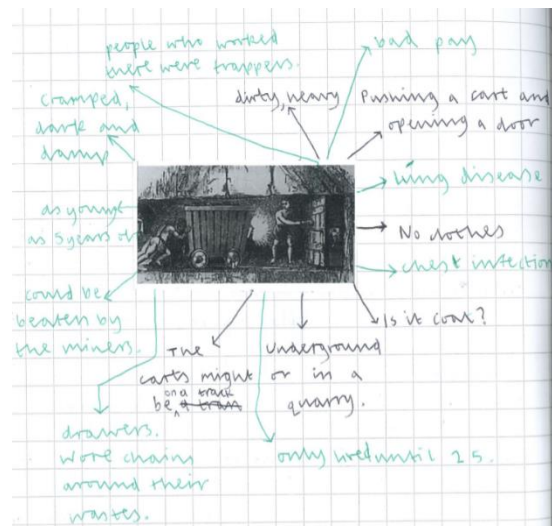 people who worked
there were trappers.
bad pay
dirty, heavy
Pushing a cart and
opening a door
Cramped,
dark and
damp
lung disease
as young
as 5 years old
No clothes
chest infection
could be
beaten by
the miners.
Is it coal?
The
carts might
on a track
be a tram
Underground
or in a
quarry.
drawers.
wore chains
around their
wastes.
only lived until 25.